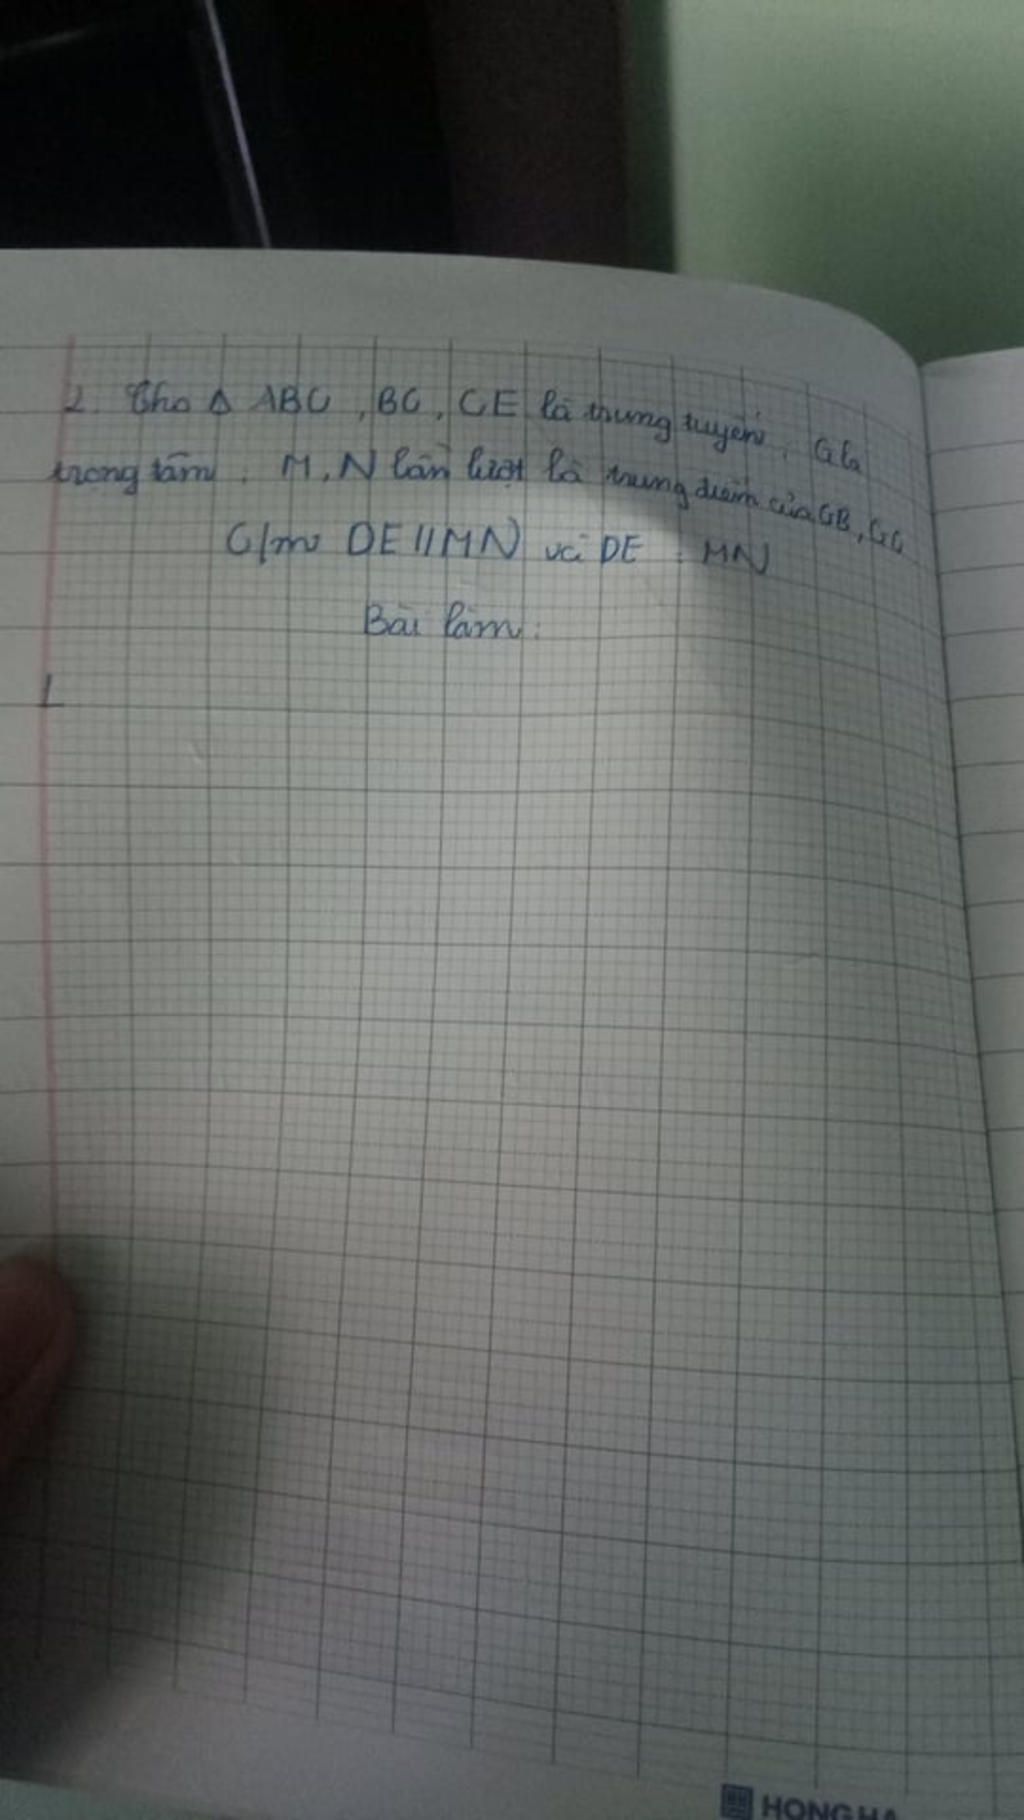 2. Cho Δ ABC, BC, CE là trung tuyến, G là
trọng tâm. M, N lần lượt là trung điểm của GB, GC
C/m DE // MN và DE = MN
Bài làm:
1
HONG HA